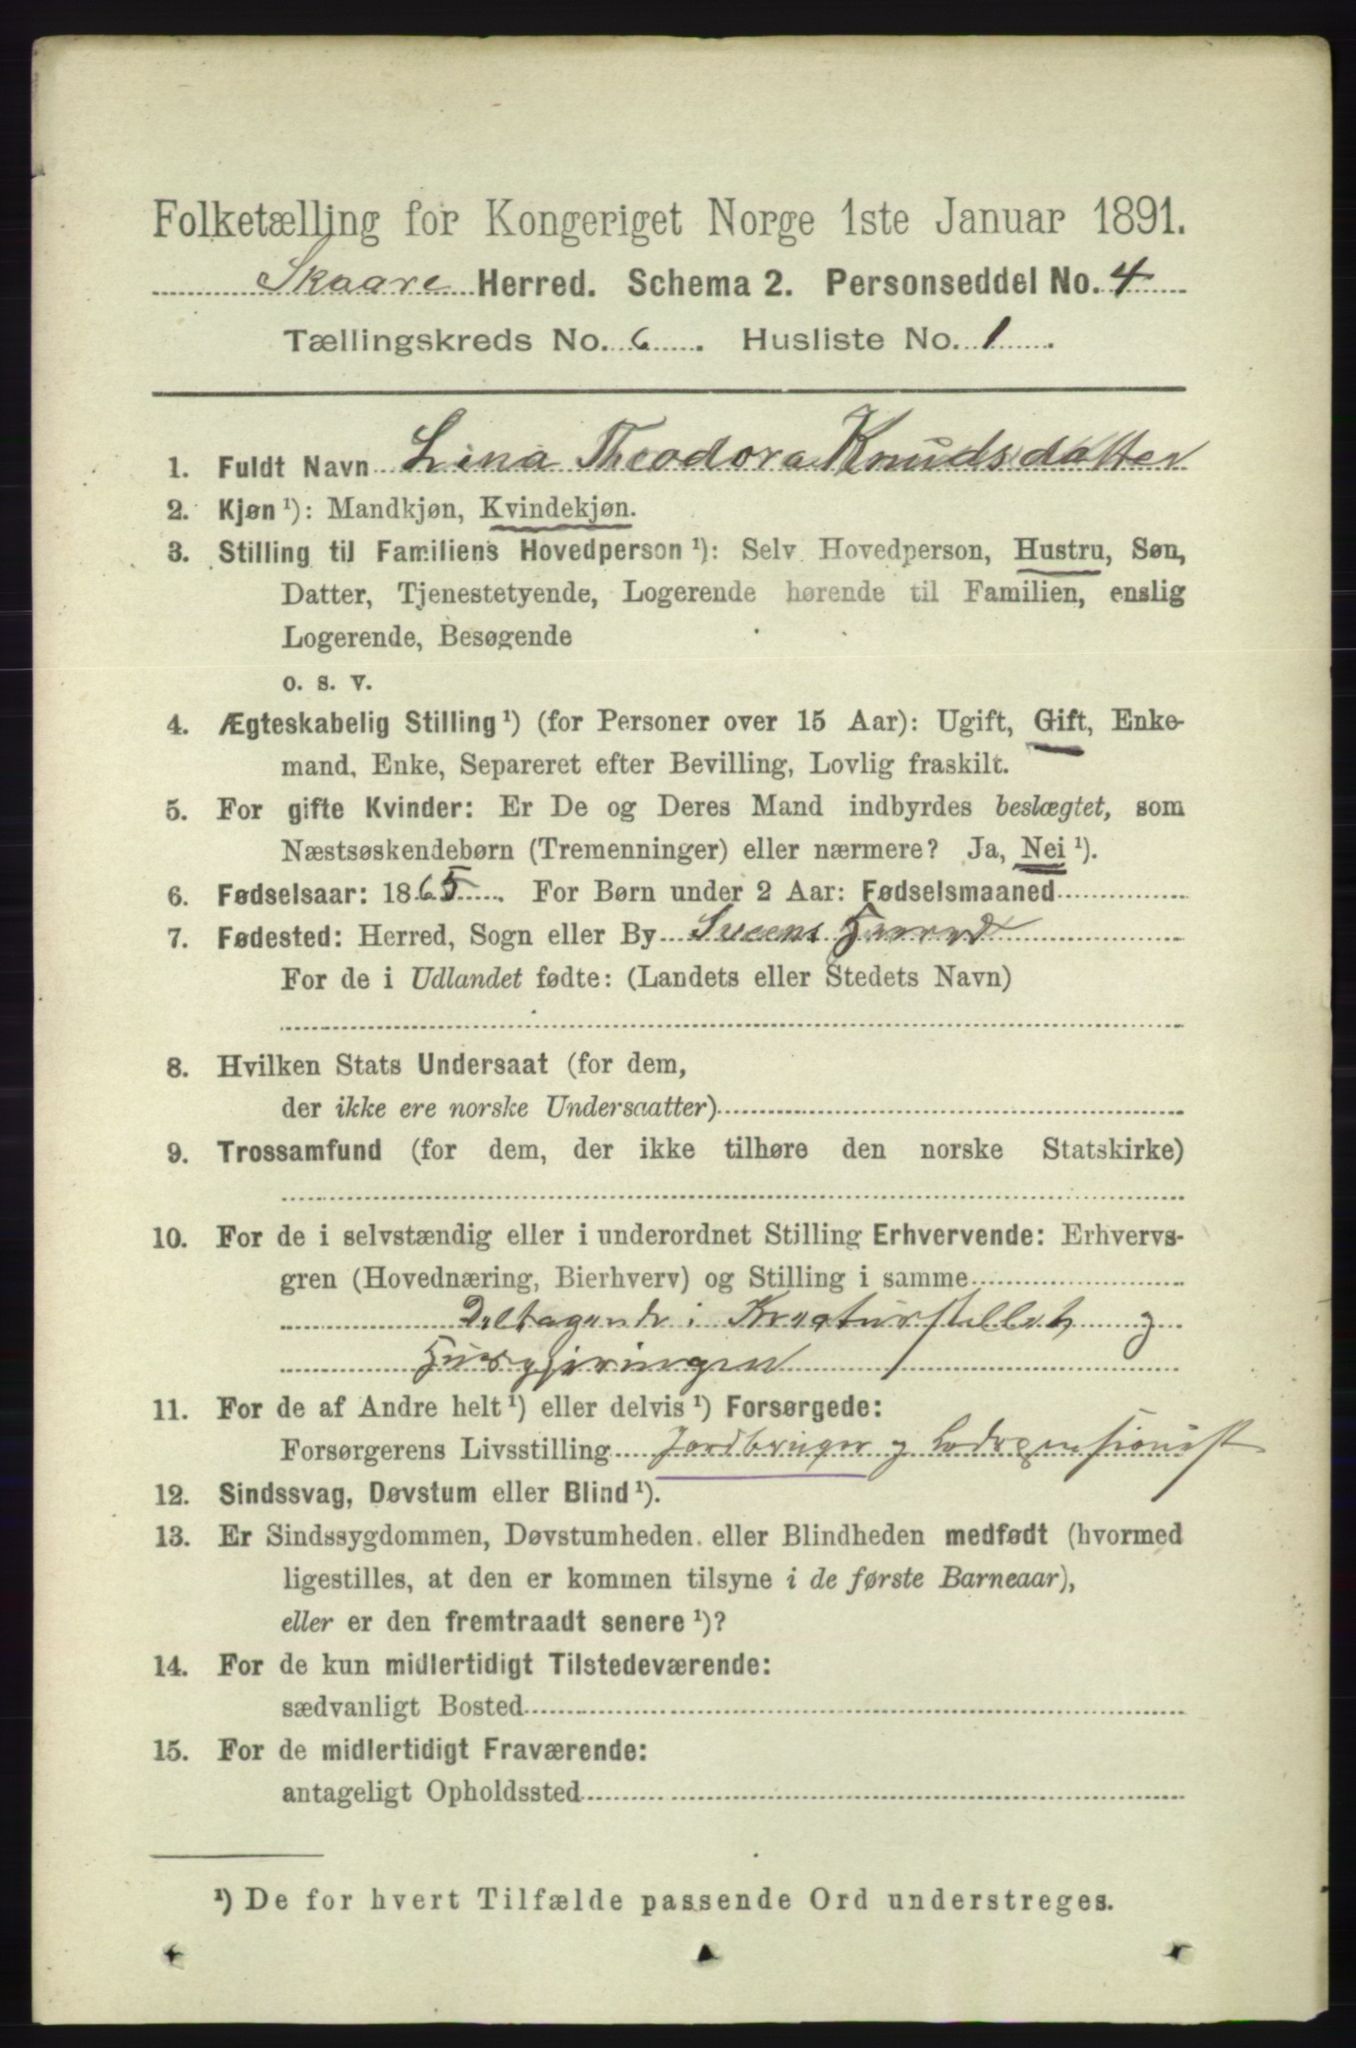 Folketælling for Kongeriget Norge 1ste Januar 1891.
Skaare Herred. Schema 2. Personseddel No. 4
Tællingskreds No. 6. Husliste No. 1.
1. Fuldt Navn Lina Theodora Knudsdatter
2. Kjøn ¹): Mandkjøn, Kvindekjøn.
3. Stilling til Familiens Hovedperson ¹): Selv Hovedperson, Hustru, Søn,
Datter, Tjenestetyende, Logerende hørende til Familien, enslig
Logerende, Besøgende
o. s. v.
4. Ægteskabelig Stilling ¹) (for Personer over 15 Aar): Ugift, Gift, Enke-
mand, Enke, Separeret efter Bevilling, Lovlig fraskilt.
5. For gifte Kvinder: Er De og Deres Mand indbyrdes beslægtet, som
Næstsøskendebørn (Tremenninger) eller nærmere? Ja, Nei ¹).
6. Fødselsaar: 1865. For Børn under 2 Aar: Fødselsmaaned
7. Fødested: Herred, Sogn eller By Sveens Herred
For de i Udlandet fødte: (Landets eller Stedets Navn)
8. Hvilken Stats Undersaat (for dem,
der ikke ere norske Undersaatter)
9. Trossamfund (for dem, der ikke tilhøre den norske Statskirke)
10. For de i selvstændig eller i underordnet Stilling Erhvervende: Erhvervs-
gren (Hovednæring, Bierhverv) og Stilling i samme
Deltagende i Kreaturstellet og
Husgjerningen
11. For de af Andre helt ¹) eller delvis ¹) Forsørgede:
Forsørgerens Livsstilling Jordbruger og
12. Sindssvag, Døvstum eller Blind ¹).
13. Er Sindssygdommen, Døvstumheden eller Blindheden medfødt (hvormed
ligestilles, at den er kommen tilsyne i de første Barneaar),
eller er den fremtraadt senere ¹)?
14. For de kun midlertidigt Tilstedeværende:
sædvanligt Bosted
15. For de midlertidigt Fraværende:
antageligt Opholdssted
¹) De for hvert Tilfælde passende Ord understreges.